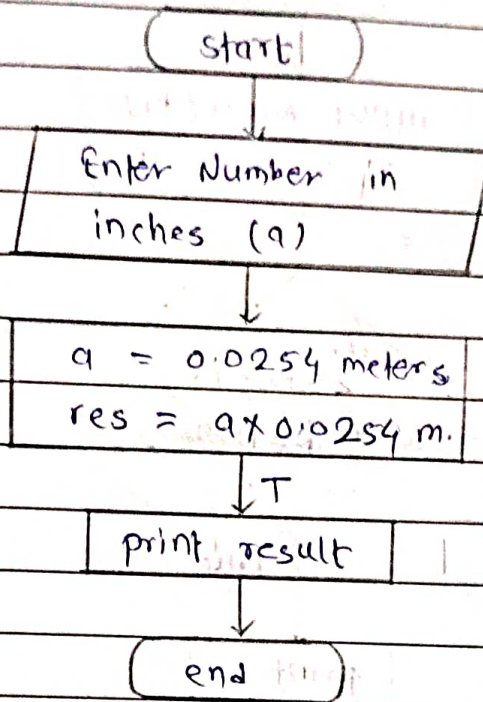 start
Enter Number in
inches (a)
a = 0.0254 meters
res = a x 0.0254 m.
T
print result
end